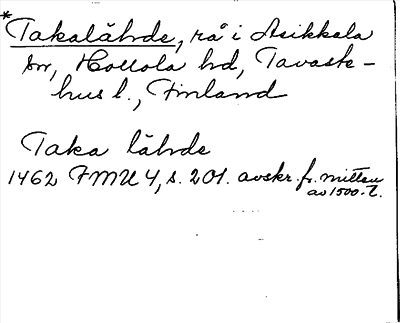 *Takalähde, rå i Asikkala
sn, Hollola hd, Tavaste-
hus l., Finland
Taka lähde
1462 FMU 4, s. 201. avskr. fr. mitten
av 1500-t.